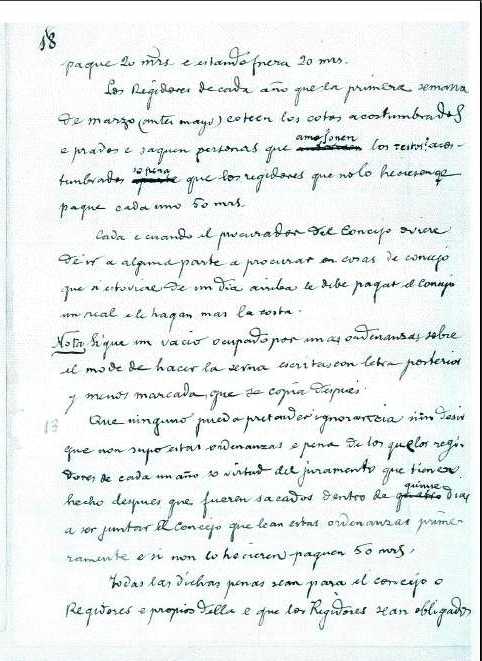 18
paque 20 mrs e estando fuera 20 mrs.
Los Regidores de cada año que la primera semana
de marzo (antes mayo) coteen los cotos acostumbrados
e prados e saquen personas que amojonen los acos-
tumbrados so pena que los regidores que no lo hecieren q̃
paque cada uno 50 mrs
Cada e cuando el procurador del Concejo oviere
de ir a alguna parte a procurar en cosas de concejo
que si estoviere de un dia arriba le debe pagar el concejo
un real e le hagan mas la costa.
Nota Sigue un vacio ocupado por unas ordenanzas sobre
el modo de hacer la serna escritas con letra posterior
y menos marcada, que se copia después.
13
Que ninguno pueda pretender ignorancia nin desir
que non supo estas ordenanzas e pena de los que los regi-
dores de cada un año so virtud del juramento que tienen
hecho despues que fueren sacados dentro de quince dias
a ser juntar el Concejo que lean estas ordenanzas prime-
ramente e si non lo hecieren paquen 50 mrs.
Todas las dichas penas sean para el concejo o
Regidores e propios della e que los Regidores sean obligados